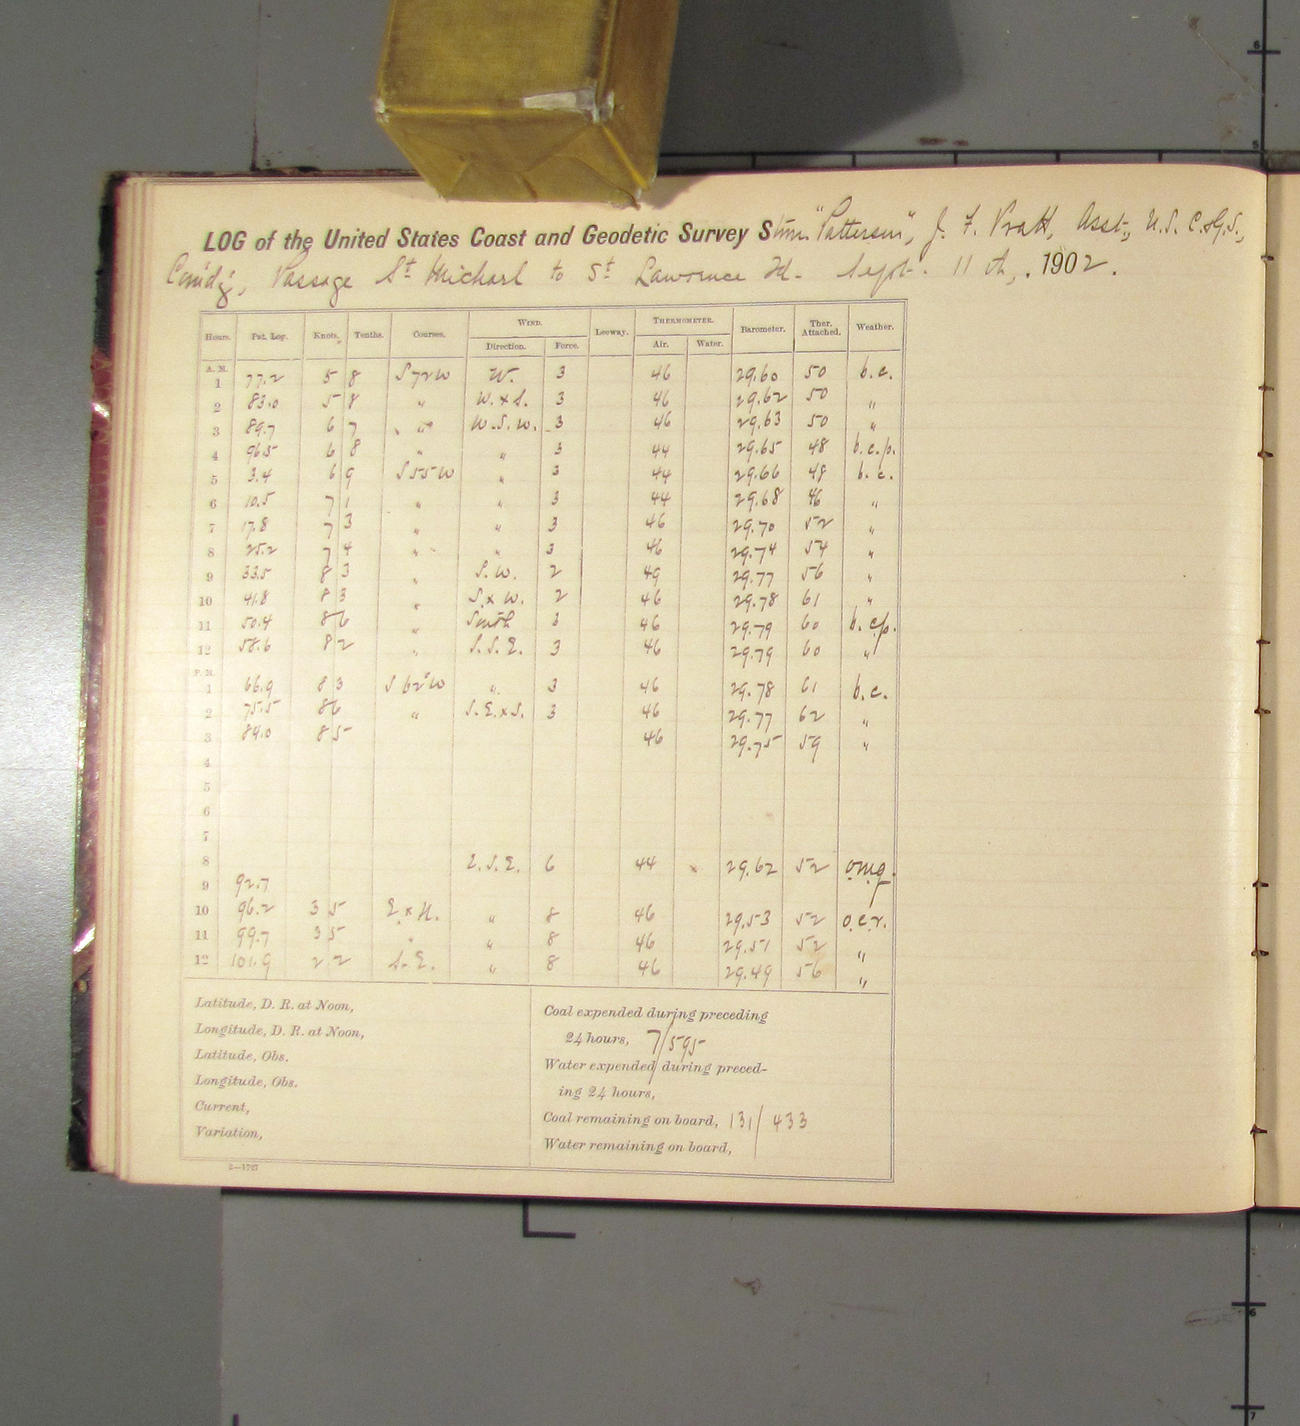 LOG of the United States Coast and Geodetic Survey Stmr. "Patterson", J. F. Pratt, Asst., U.S.C.&G.S.,
Com'd'g, Passage St Michael to St Lawrence Id. Sept. 11th, 1902.
Hours. Pat. Log. Knots. Tenths. Courses. WIND. Leeway. THERMOMETER. Barometer. Ther. Attached. Weather.
Direction. Force. Air. Water.
A. M.
1 77.2 5 8 S72W W. 3 46 29.60 50 b.c.
2 83.0 5 8 " W.xS. 3 46 29.62 50 "
3 89.7 6 7 " W.S.W. 3 46 29.63 50 "
4 96.5 6 8 " " 3 44 29.65 48 b.c.p.
5 3.4 6 9 S55W " 3 44 29.66 48 b.c.
6 10.5 7 1 " " 3 44 29.68 46 "
7 17.8 7 3 " " 3 46 29.70 52 "
8 25.2 7 4 " " 3 46 29.74 54 "
9 33.5 8 3 " S.W. 2 49 29.77 56 "
10 41.8 8 3 " S.xW. 2 46 29.78 61 "
11 50.4 8 6 " South 3 46 29.79 60 b.c.p.
12 58.6 8 2 " S.S.E. 3 46 29.79 60 "
P. M.
1 66.9 8 3 S62°W " 3 46 29.78 61 b.c.
2 75.5 8 6 " S.E.xS. 3 46 29.77 62 "
3 84.0 8 5 46 29.75 59 "
4
5
6
7
8 E.S.E. 6 44 29.62 52 o.m.q.
9 92.7
10 96.2 3 5 E.xN. " 8 46 29.53 52 o.c.r.
11 99.7 3 5 " " 8 46 29.51 52 "
12 101.9 2 2 S.E. " 8 46 29.49 56 "
Latitude, D. R. at Noon,
Longitude, D. R. at Noon,
Latitude, Obs.
Longitude, Obs.
Current,
Variation,
Coal expended during preceding
24 hours, 7/595
Water expended during preced-
ing 24 hours,
Coal remaining on board, 131/433
Water remaining on board,
2—1727
6
5
6
7